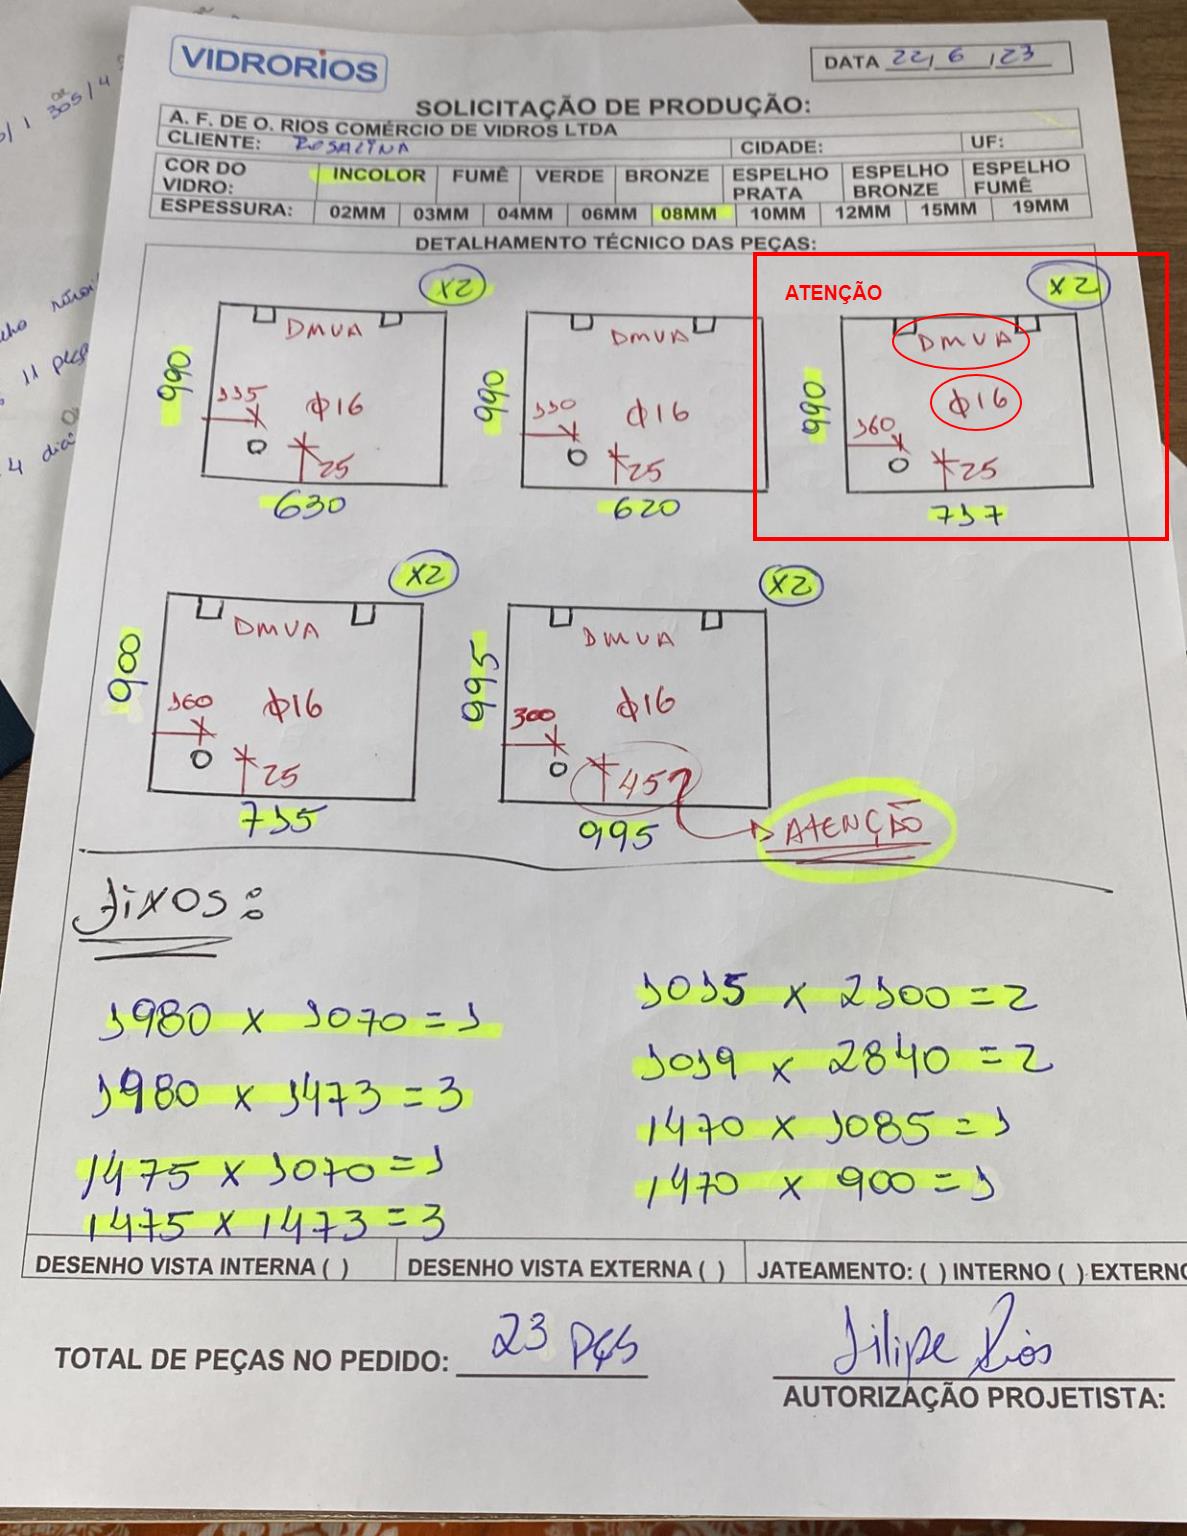 VIDRORIOS
DATA 22/6/23
SOLICITAÇÃO DE PRODUÇÃO:
A. F. DE O. RIOS COMÉRCIO DE VIDROS LTDA
CLIENTE: ROSALINA CIDADE: UF:
COR DO VIDRO: INCOLOR FUMÊ VERDE BRONZE ESPELHO PRATA ESPELHO BRONZE ESPELHO FUMÊ
ESPESSURA: 02MM 03MM 04MM 06MM 08MM 10MM 12MM 15MM 19MM
DETALHAMENTO TÉCNICO DAS PEÇAS:
X2
DMVA
990
115
φ16
25
630
DMVA
990
110
φ16
25
620
ATENÇÃO
X2
DMVA
990
160
φ16
25
717
X2
DMVA
900
160
φ16
25
715
X2
DMVA
995
300
φ16
45
995
ATENÇÃO
FIXOS:
1980 x 1070 = 1
1980 x 1473 = 3
1475 x 1070 = 1
1475 x 1473 = 3
1015 x 2100 = 2
1019 x 2840 = 2
1470 x 1085 = 1
1470 x 900 = 1
DESENHO VISTA INTERNA ( ) DESENHO VISTA EXTERNA ( ) JATEAMENTO: ( ) INTERNO ( ) EXTERNO
TOTAL DE PEÇAS NO PEDIDO: 23 PÇS
Filipe Rios
AUTORIZAÇÃO PROJETISTA:
305/4
11 peças